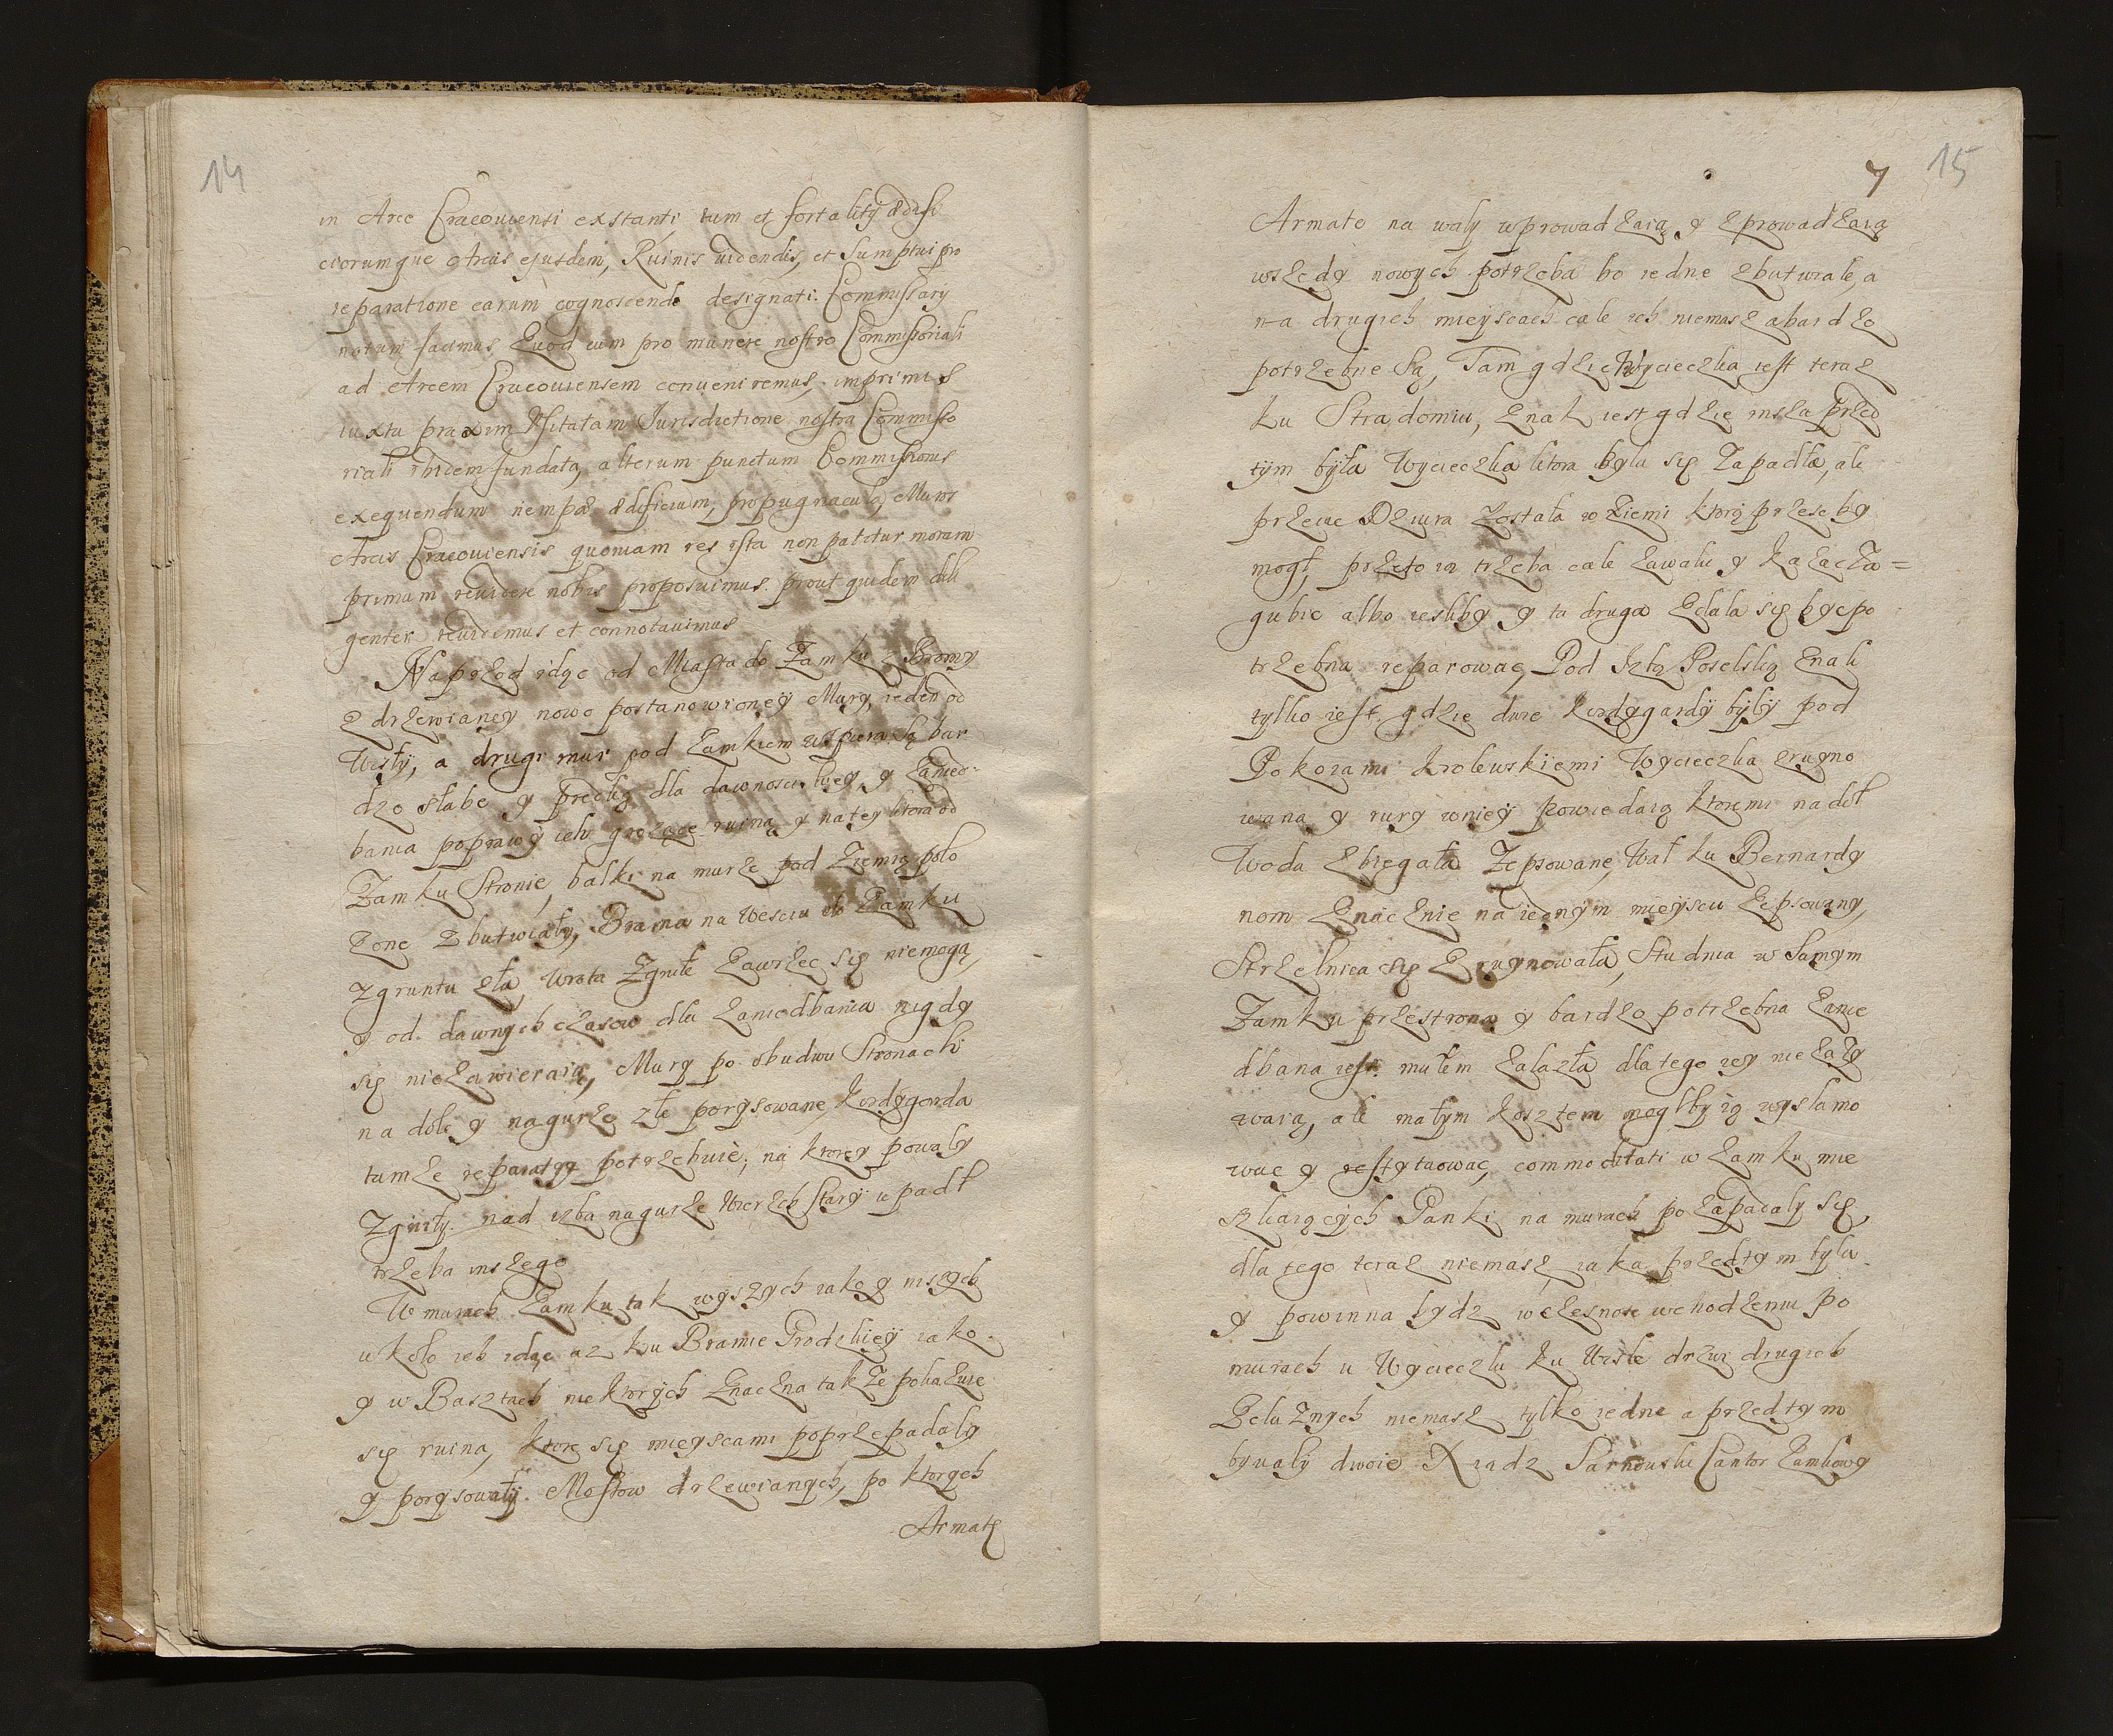 14
in Arce Cracouiensi exstanti, tum et fortality ædifi
ciorumque Arcis ejusdem, Ruinis uidendis, et Sumptui pro
reparatione earum cognoscendo designati. Commissarÿ
notum facimus, Quod cum pro munere nostro Commissoriali
ad Arcem Cracouiensem conueniremus, imprimis
iuxta praxim Vsitatam Jurisdictione nostra Commisso
riali ibidem fundata, alterum punctum Commissionis
exequendum nempæ ædificium, propugnacula, Muros
Arcis Cracouiensis quoniam res ista non patitur moram
primum reuidere nobis proposuimus. prout quidem dili
genter reuidemus et connotauimus
Naprzod idąc od Miasta do Zamku z Bromy
z drzewianey nowo postanowioney Mury, ieden od
Wisły, a drugi mur pod Zamkiem wspiera są bar
dzo słabe y prętką dla dawnosci swey, y zanied-
bania poprawÿ ich grożące ruiną y na tey ktora od
Zamku Stronie, balki na murze pod Ziemią poło
zone zbutwiały, Brama na Wesciu do Zamku
z gruntu zła, Wrota Zgniłe zawrzec się niemogą,
y od. dawnych czasow dla zaniedbania nigdy
się niezawieraią, Mury po obudwu Stronach
na dole y nagurze złe porysowane, kordygarda
tamże reparatyy potrzebuie, na ktorey powały
Zgniły. nad izba nagurze Wierzch stary upadł
trzeba inszego
W murach Zamku tak wyszych iako y niszych
ukoło ich idąc az ku Bramie Grodzkieÿ iako
y w Basztach niektorÿch znaczna takze pokazuie
się ruina, ktore się mieyscami poprzepadały
y porysowałÿ. Mostow drzewianych, po ktorych
Armatę
7 15
Armate na wały wprowadzaią, y zprowadzaią
wszędy nowych potrzeba bo iedne zbutwiałe, a
na drugich mieÿscach cale ich niemasz abardzo
potrzebne Są, Tam gdzie Wycieczka iest teraz
ku Stradomiu, znak iest gdzie insza przed
tÿm bÿła Wycieczka ktora była się Zapadła, ale
przecie Dziura została w Ziemi ktorą przeseby
mogł, przeto ią trzeba cale zawalic y kazac Za=
gubic albo iesliby y ta druga zdala się byc po
trzebna reparowac, Pod Izbą Poselską znak
tylko iest, gdzie dwie kordygardÿ bÿłÿ pod
Pokoiami krolewskiemi Wycieczka zruyno
wana y rury wnieÿ powiedaią ktoremi nadoł
Woda zbiegała Zepsowane, Wał ku Bernardy
nom znacznie na iednÿm mieÿscu zepsowany,
Strzelnica się zruynowała, Studnia w Samym
Zamku przestrona y bardzo potrzebna zanie
dbana iest. mułem zalazła dla tego iey nie zazy
waią, ale małym kosztem mogłby ią wyslamo
wac y restytuowac, commoditati w zamku mie
szkaiącÿch Ganki na murach pozapadaly się,
dla tego teraz niemasz, iaka przedtym byla
y powinna bydz wczesnosc wchodzeniu po
murach u Wycieczki ku Wisle drzwi drugich
Zelaznych niemasz, tylko iedne a przedtym
bywały dwoie Xiadz Sarnowski Cantor Zamkowy